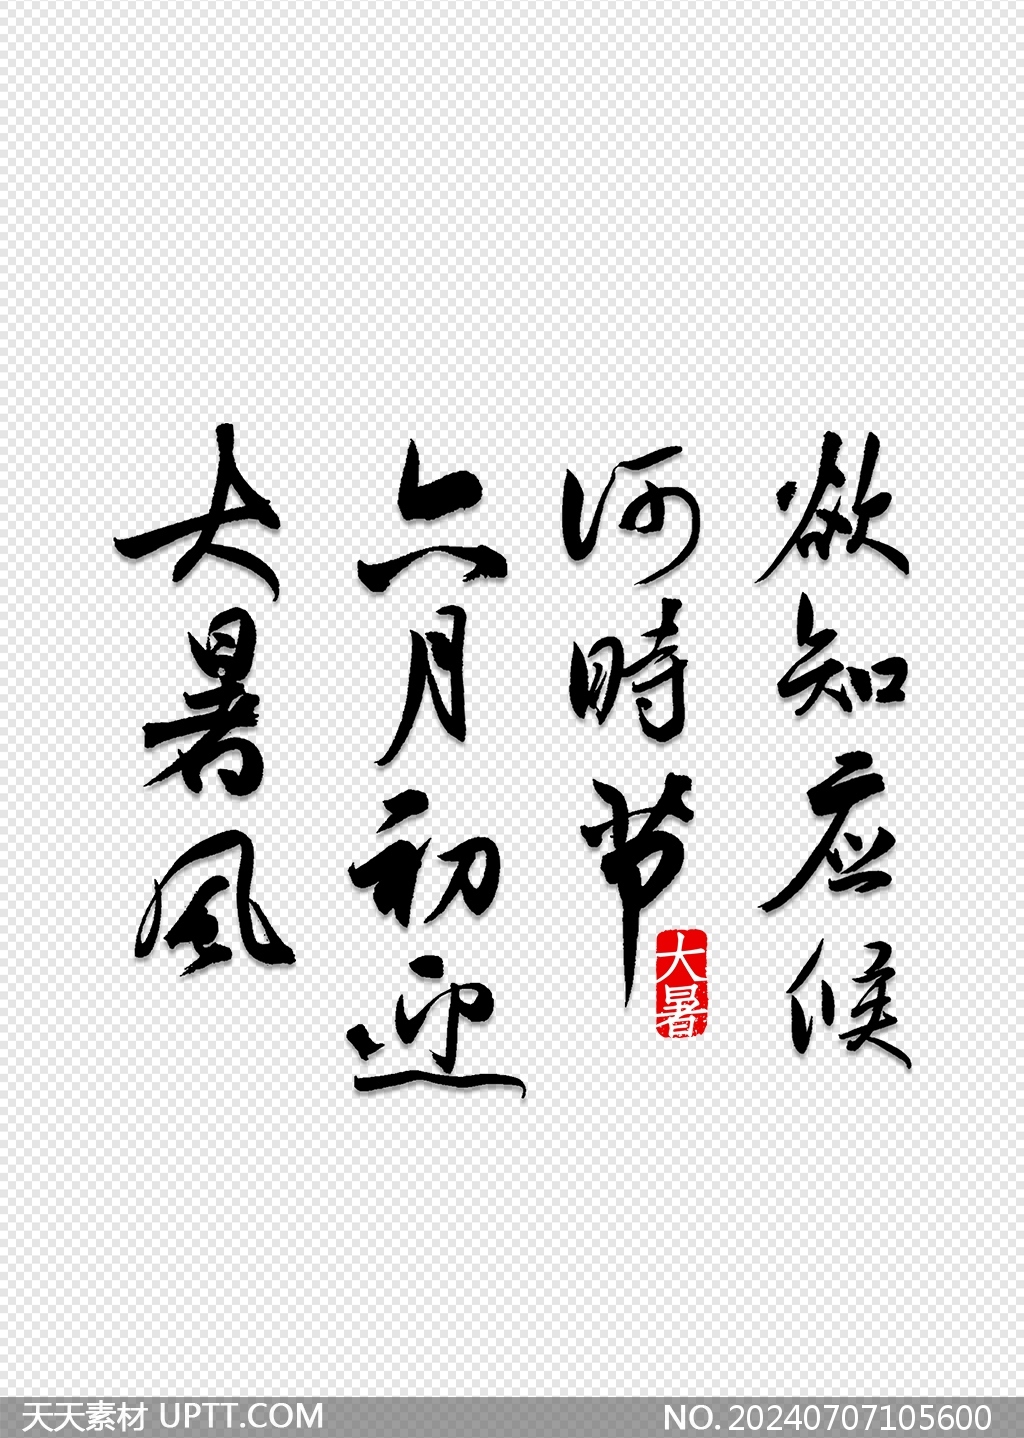 欲知应候
何時节
六月初迎
大暑風
大暑
天天素材 UPTT.COM
NO. 20240707105600